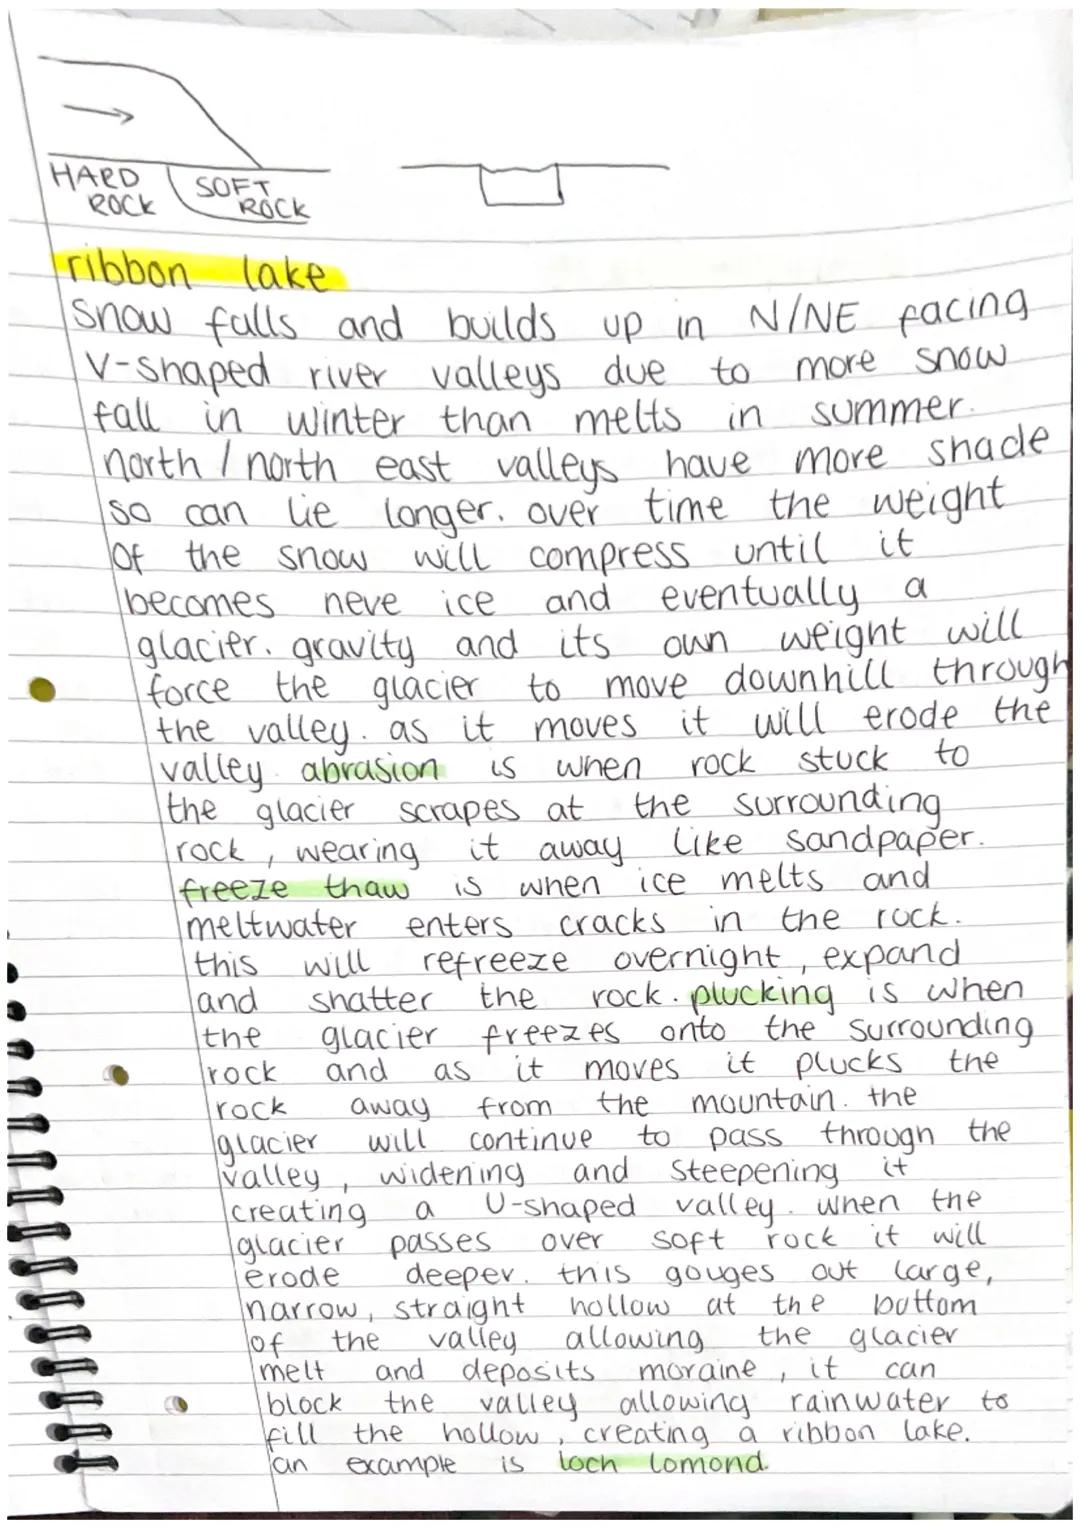 HARD
ROCK
SOFT
ROCK
ribbon lake
snow falls and builds up in N/NE facing
V-shaped river valleys due to more snow
fall in winter than melts in summer.
north / north east valleys have more shade
so can lie longer. over time the weight
of the snow will compress until it
becomes neve ice and eventually a
glacier. gravity and its own weight will
force the glacier to move downhill through
the valley. as it moves it will erode the
valley. abrasion is when rock stuck to
the glacier scrapes at the surrounding
rock, wearing it away like sandpaper.
freeze thaw is when ice melts and
meltwater enters cracks in the rock.
this will refreeze overnight, expand
and shatter the rock. plucking is when
the glacier freezes onto the surrounding
rock and as it moves it plucks the
rock away from the mountain. the
glacier will continue to pass through the
valley, widening and steepening it
creating a U-shaped valley. when the
glacier passes over soft rock it will
erode deeper. this gouges out large,
narrow, straight hollow at the bottom
of the valley allowing the glacier
melt and deposits moraine, it can
block the valley allowing rainwater to
fill the hollow, creating a ribbon lake.
an example is loch lomond.